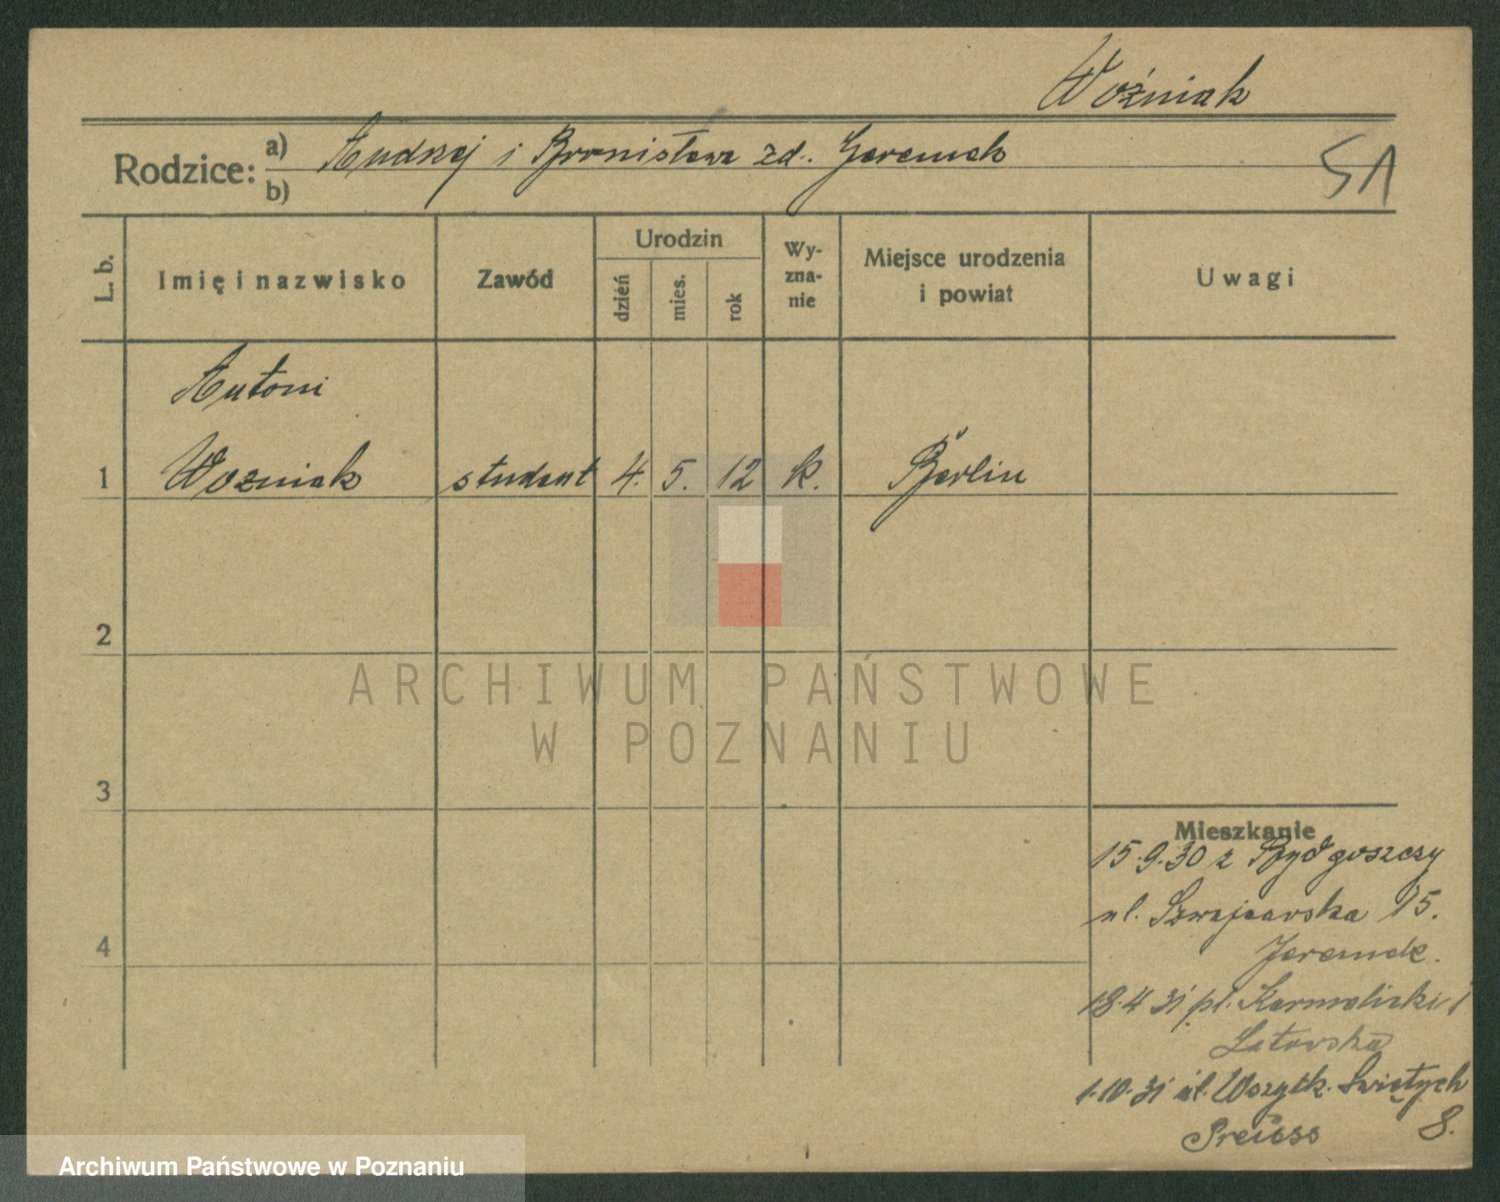 Woźniak
Rodzice: a) Andrzej i Bronisława zd. Jeremek
b)
51
L. b.
Imię i nazwisko
Zawód
Urodzin
dzień
mies.
rok
Wy-
zna-
nie
Miejsce urodzenia
i powiat
Uwagi
Antoni
1 Wozniak student 4. 5. 12 k. Berlin
2
ARCHIWUM PAŃSTWOWE
W POZNANIU
3
Mieszkanie
15.9.30 z Bydgoszczy
ul. Szwajcarska 15.
4
Jeremek.
18.4 31 pl. Karmelicki 1
Latowska
1.10.31 ul. Wszystk. Świętych
Preioss 8.
Archiwum Państwowe w Poznaniu